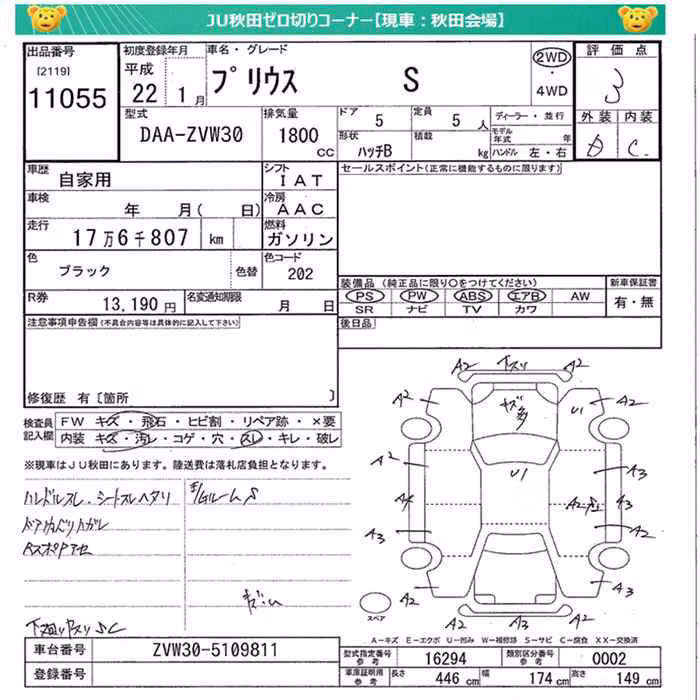 JU秋田ゼロ切りコーナー【現車：秋田会場】
出品番号 初度登録年月 車名・グレード 評価点
[2119] 平成 プリウス S 2WD 3
11055 22 1月 ・4WD
外装 内装
型式 排気量 ドア 5 定員 5人 ディーラー・並行
DAA-ZVW30 1800cc 形状 ハッチB 積載 kg モデル年式 年 C
ハンドル 左・右
車歴 自家用 シフト IAT セールスポイント(正常に機能するものに限ります)
車検 年 月( 日) 冷房 AAC
走行 17万6千807 km 燃料 ガソリン
色 ブラック 色替 色コード 202
装備品(純正品に限り○をつけてください) 新車保証書
PS PW ABS エアB AW 有・無
SR ナビ TV カワ
R券 13,190円 名変通知期限 月 日
注意事項申告欄(不具合内容等は具体的に記入して下さい) 後日品
修復歴 有〔箇所 〕
検査員記入欄 FW キズ・飛石・ヒビ割・リペア跡・×要
内装 キズ・汚レ・コゲ・穴・スレ・キレ・破レ
※現車はJU秋田にあります。陸送費は落札店負担となります。
ハンドルスレ・シートスレヘタリ
A2 下スリ A2
A2 キズ多 U1 A2
A2 U1 A3
A4 A2
A3 A2
A2 A3
A2 A3 A2
スペア
A－キズ E－エクボ U－凹み W－補修跡 S－サビ C－腐食 XX－交換済
車台番号 ZVW30-5109811 型式指定番号 参考 16294 類別区分番号 参考 0002
登録番号 車庫証明用 参考 長さ 446 cm 幅 174 cm 高さ 149 cm